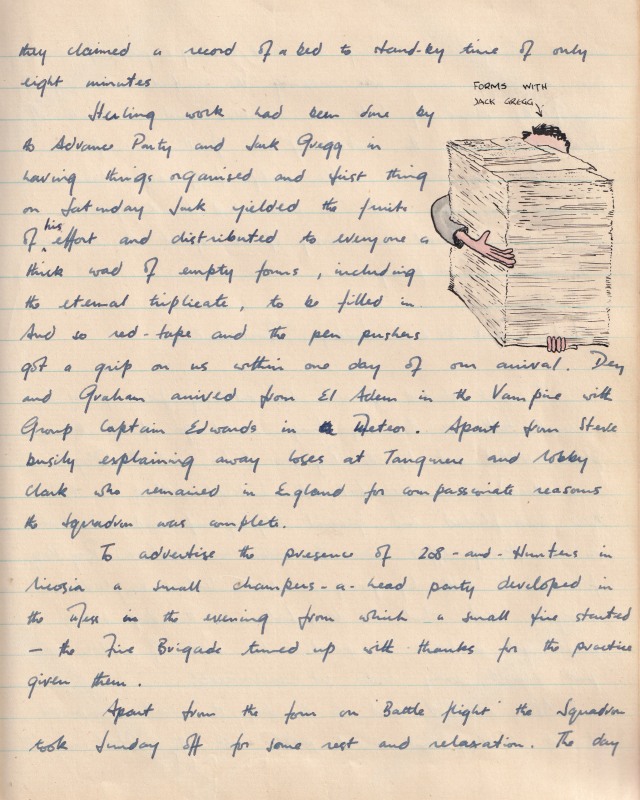 they claimed a record of a bed to stand-by time of only
eight minutes
FORMS WITH
JACK GREGG
Sterling work had been done by
to Advance Party and Jack Gregg in
having things organised and first thing
on Saturday Jack yielded the fruits
of his effort and distributed to everyone a
thick wad of empty forms, including
the eternal triplicate, to be filled in.
And so red-tape and the pen pushers
got a grip on us within one day of our arrival. Den
and Graham arrived from El Adem in the Vampire with
Group Captain Edwards in Meteor. Apart from Steve
busily explaining away loses at Tangmere and
Clark who remained in England for compassionate reasons
the Squadron was complete.
To advertise the presence of 208-and-Hunters in
Nicosia a small champers-a-head party developed in
the Mess in the evening from which a small fire started
- the Fire Brigade turned up with thanks for the practice
given them.
Apart from the four on 'Battle flight' the Squadron
took Sunday off for some rest and relaxation. The day